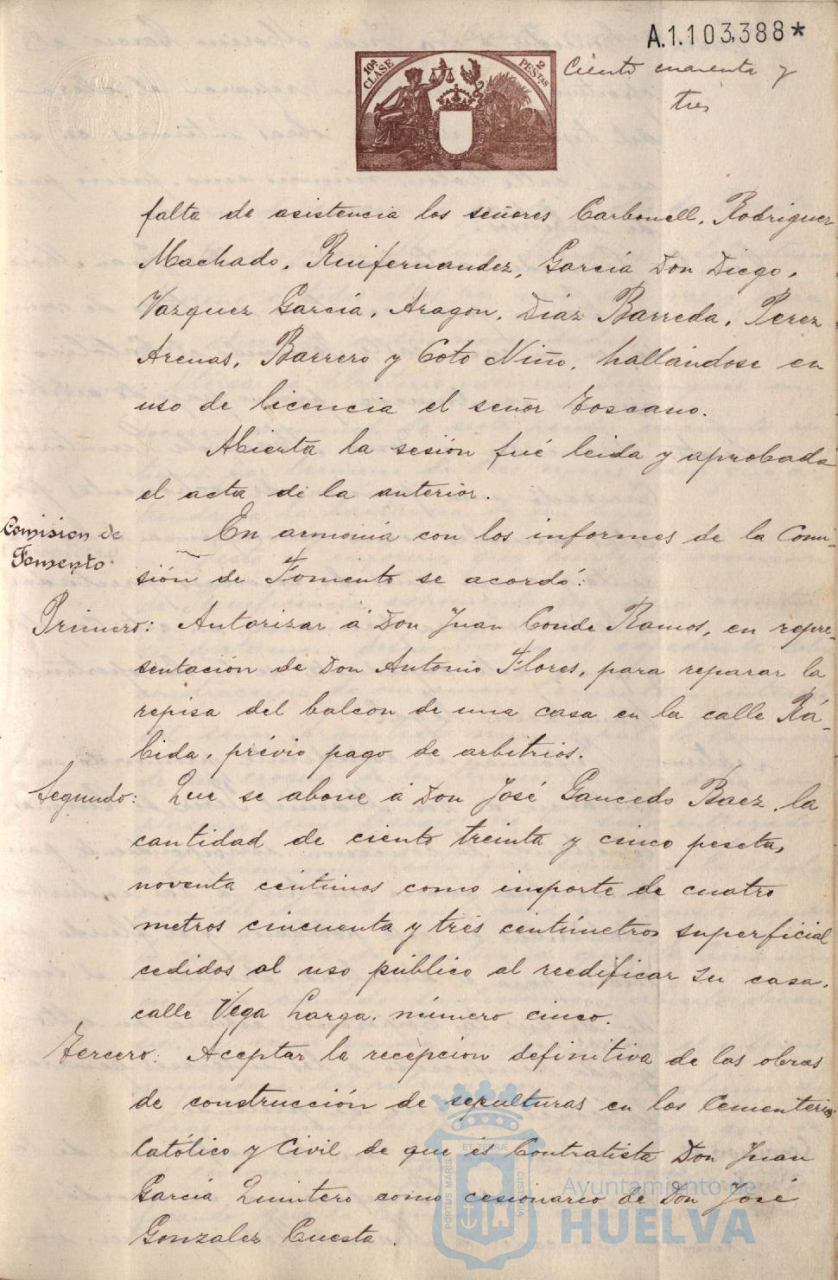 A.1.103,388*
10ª CLASE
2 PESETAS
Ciento cuarenta y
tres
falta de asistencia los señores Carbonell, Rodriguez
Machado, Ruifernandez, García Don Diego,
Vazquez García, Aragon, Díaz Barreda, Perez
Arenas, Barrero y Coto Niño, hallándose en
uso de licencia el señor Toscano.
Abierta la sesión fué leida y aprobada
el acta de la anterior.
Comision de
Fomento.
En armonia con los informes de la Comi-
sión de Fomento se acordó:
Primero: Autorizar á Don Juan Conde Ramos, en repre-
sentación de Don Antonio Flores, para reparar la
repisa del balcon de una casa en la calle Rá-
bida, prévio pago de arbitrios.
Segundo: Que se abone á Don José Gaucedo Baez, la
cantidad de ciento treinta y cinco pesetas
noventa centimos como importe de cuatro
metros cincuenta y tres centímetros superficial
cedidos al uso público al reedificar su casa,
calle Vega Larga, número cinco.
Tercero: Aceptar la recepcion definitiva de las obras
de construcción de sepulturas en los Cementerios
Católico y Civil de que es Contratista Don Juan
García Quintero como cesionario de Don José
Gonzalez Cuesta.
PORTUS MARIS ET TERRE CUSTODIA
Ayuntamiento de
HUELVA